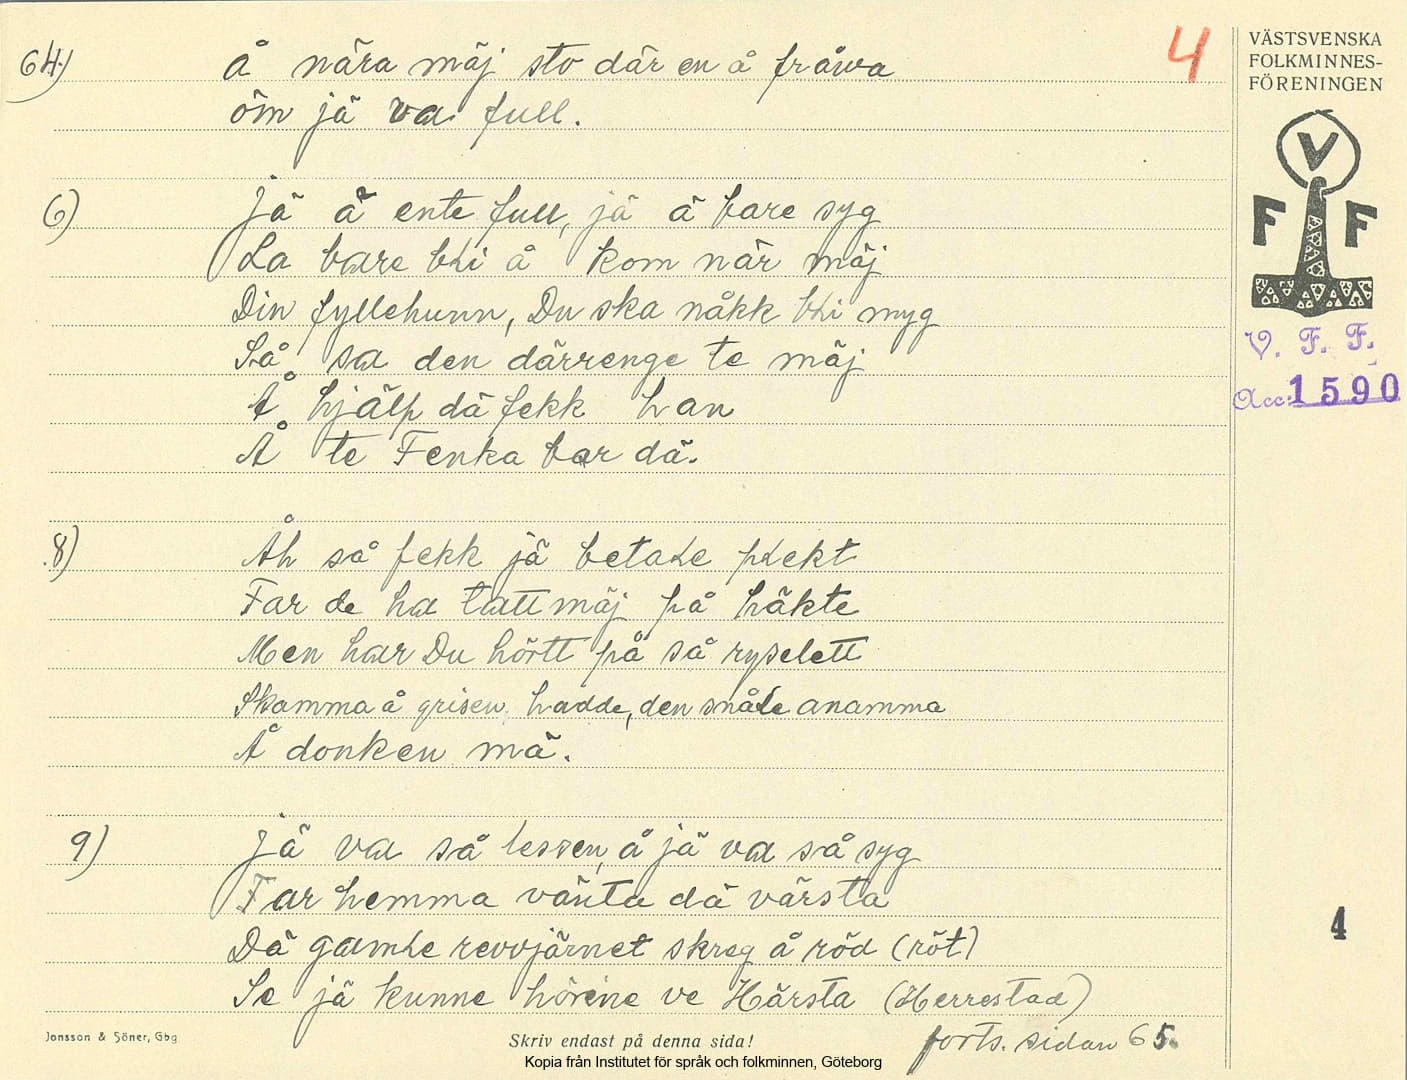 64.)
4
Å nära mäj sto där en å fråwa
öm jä va full.
6)
Jä ä ente full, jä ä bare syg
La bare bLi å kom när mäj
Din fyllehunn, Du ska nåkk bLi myg
Så sa den därrenge te mäj
Å hjälp dä fekk han
Å te Fenka bar dä.
8)
Åh så fekk jä betaLe pLekt
Far de ha tatt mäj på häkte
Men har Du hörtt på så ryselett
Skamma å grisen hadde, den snåLe anamma
Å donken mä.
9)
Jä va så lessen, å jä va så syg
Far hemma vänta dä värsta
Dä gamLe revvjärnet skreg å röd (röt)
Se jä kunne hörene ve Härsta (Herrestad)
forts. sidan 65.
VÄSTSVENSKA
FOLKMINNES-
FÖRENINGEN
V
F F
V. F. F.
Acc: 1590
4
Jonsson & Söner, Gbg
Skriv endast på denna sida!
Kopia från Institutet för språk och folkminnen, Göteborg